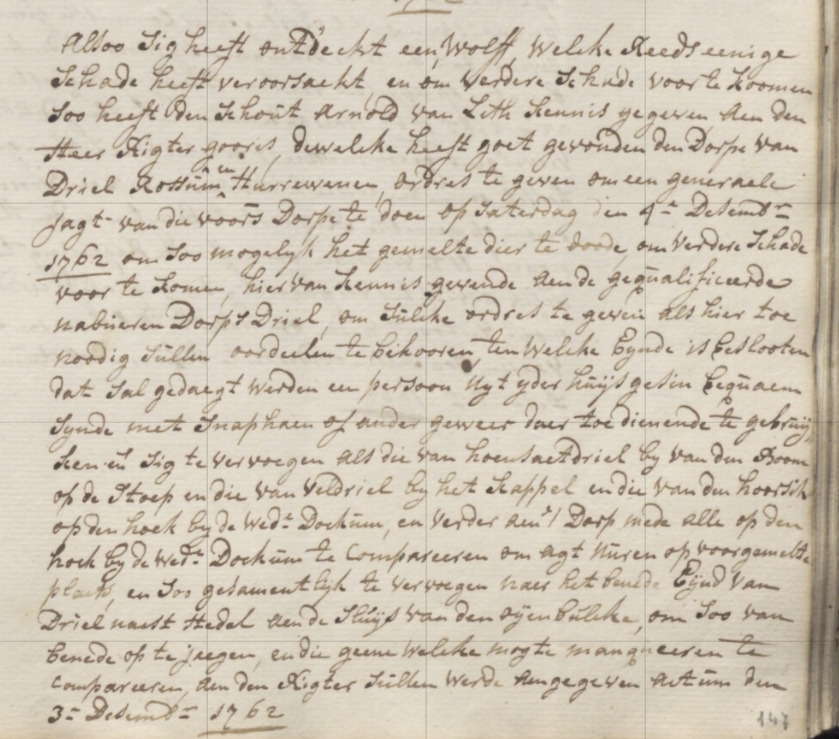 Alsoo sig heeft ontdeckt een Wolff, Welcke Reeds eenige
schade heeft veroorsaekt, en om verdere schade voor te koomen
soo heeft den schout Arnold van Lith kennis gegeven aen den
Heer Rigter goores, dewelcke heeft goet gevonden den Dorpe van
Driel Rossum en Hurrewenen, ordres te geven om een generaele
jagt van die voors Dorpe te doen op saterdag den 4n Desembr
1762 om soo mogelyk het gemelte dier te doode, om verdere schade
voor te komen, hier van kennis gevende aen de gequalificeerde
nabueren Dorps Driel, om sulcke ordres te geven als hier toe
noodig sullen oordeelen te behooren ten welcke Eynde is beslooten
dat sal gedaegt werden een persoon uyt yder huijs gesin bequaem
synde met snaphaen of ander geweer daer toe dienende te gebruij
ken en sig te vervoegen als die van hoensaetdriel by van den Boom
op de stoep en die van veldriel by het kappel en die van den hoorsik
op den hoek by de Wede Dockum, en verder aen't Dorp mede alle op den
hoek by de Wede Dockum te Compareeren om agt uuren op voorgemelte
plaets, en soo gesamentlyk te vervoegen naer het benede Eynd van
Driel naest Hedel aen de sluys van den oijenbulcke, om soo van
benede op te jaegen, en die geene welcke mogte manqueeren te
compareeren, aen den Rigter sullen werde aengegeven actum den
3n Desembr 1762
147